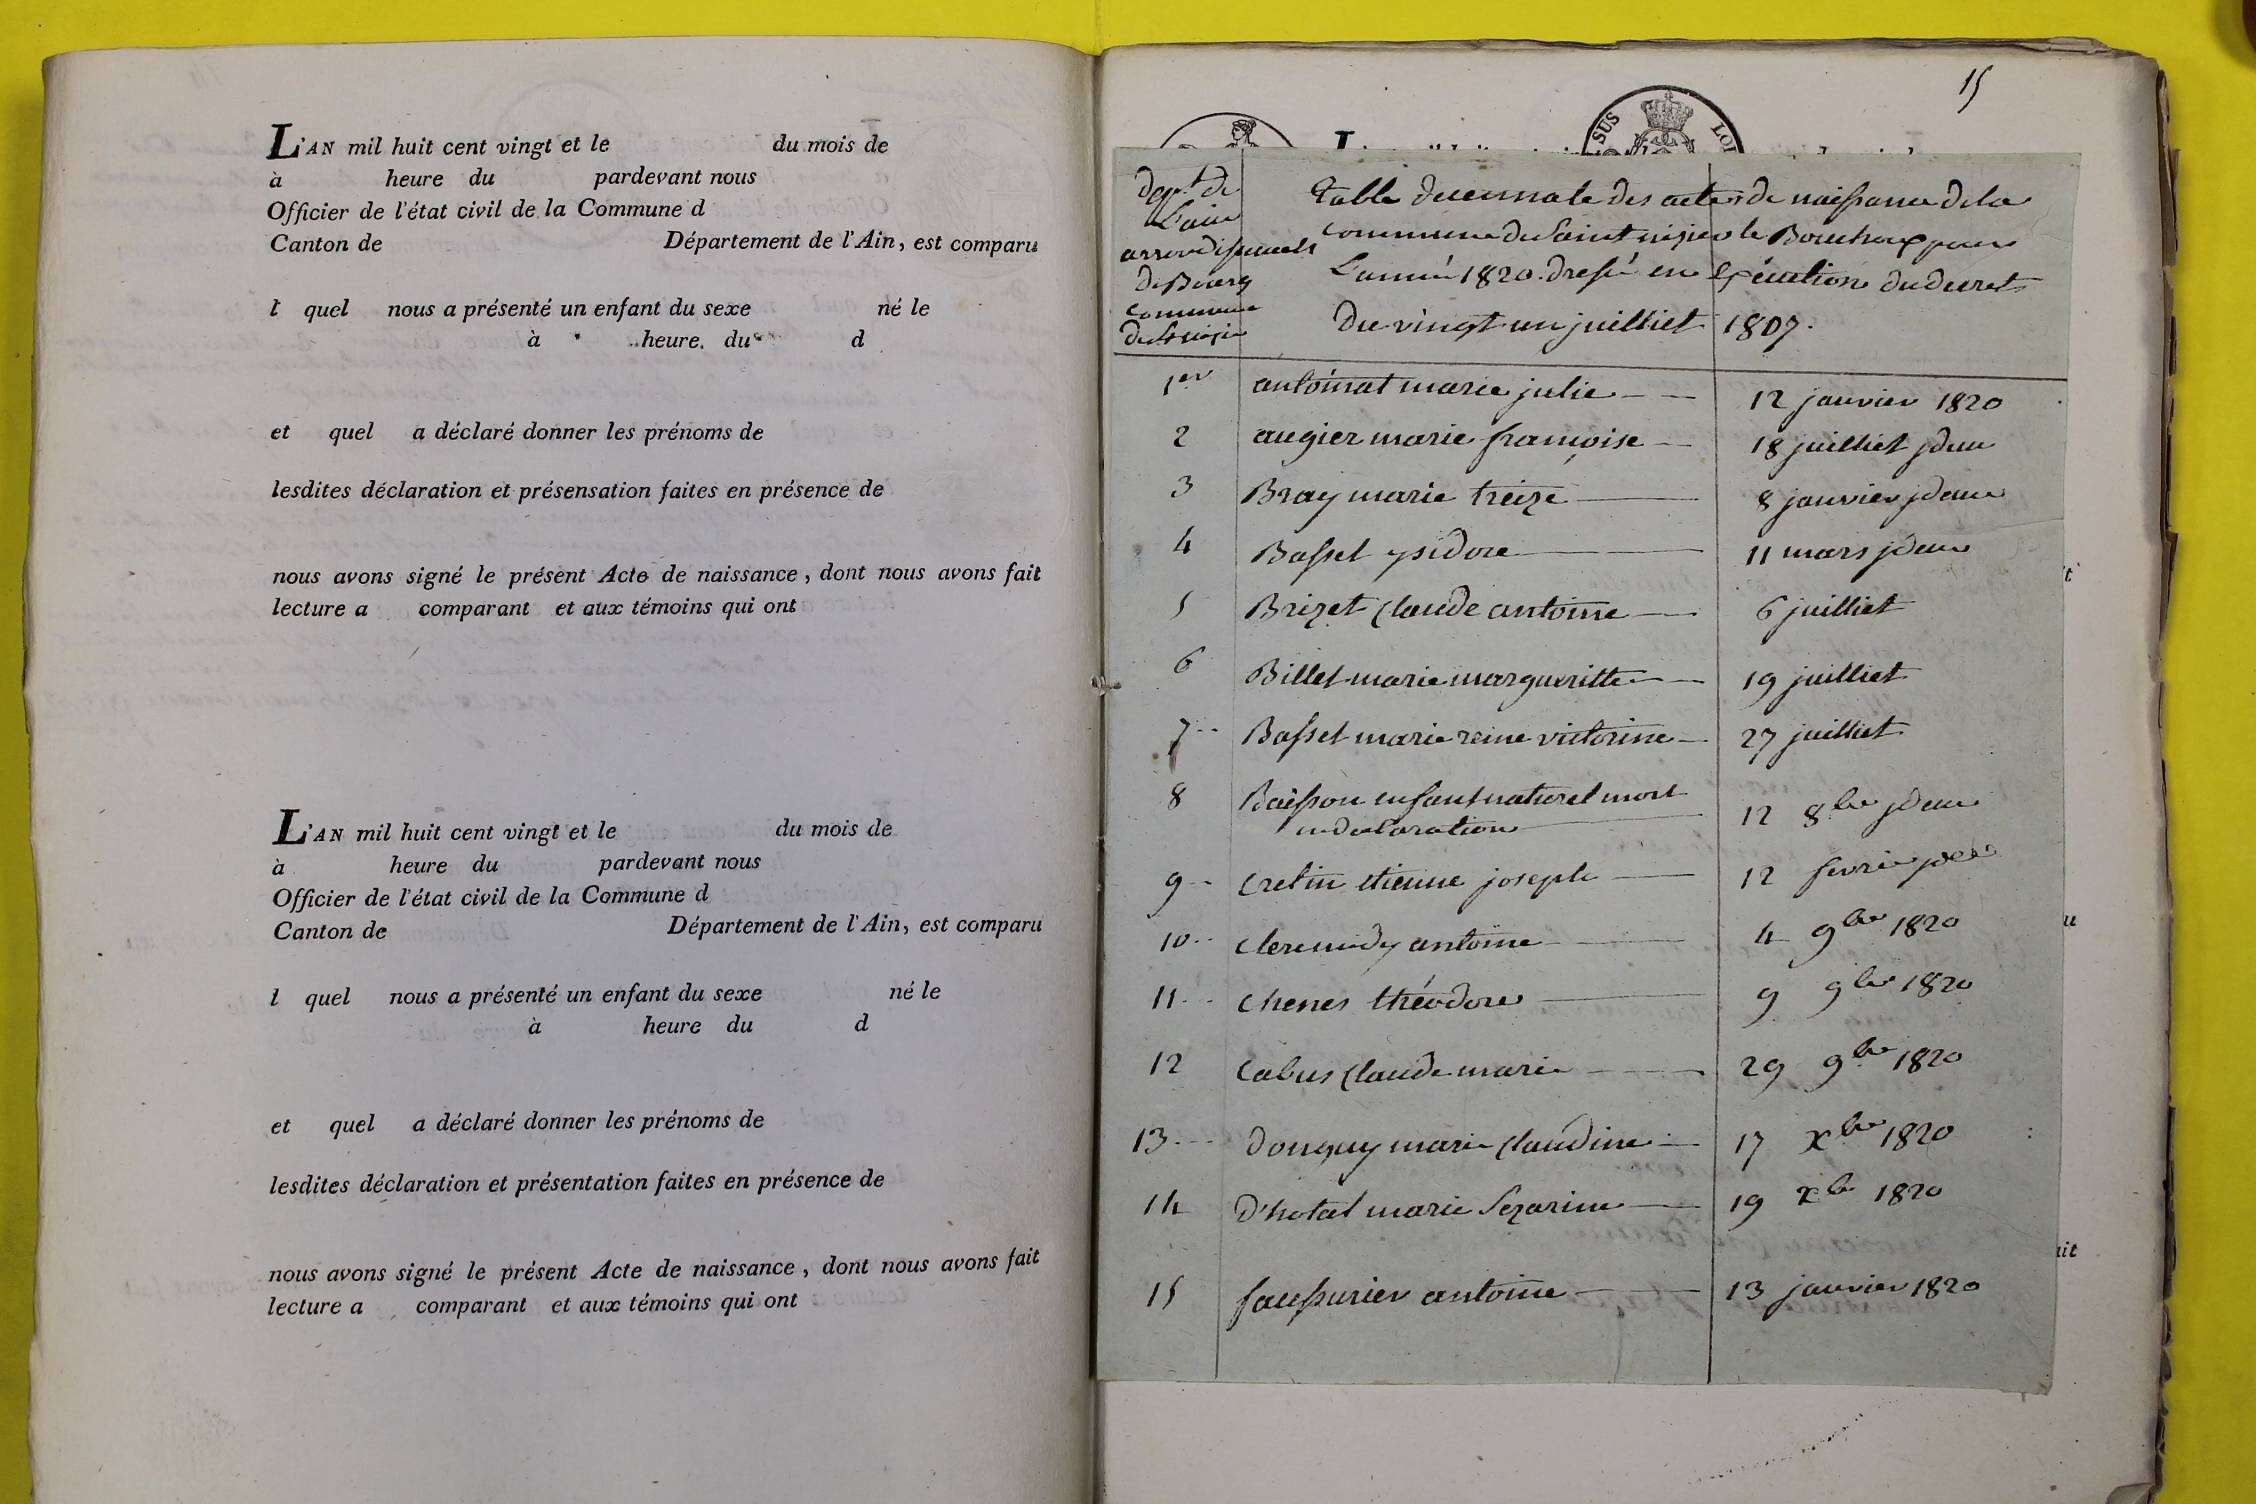 L'AN mil huit cent vingt et le du mois de
à heure du pardevant nous
Officier de l'état civil de la Commune d
Canton de Département de l'Ain, est comparu
l quel nous a présenté un enfant du sexe né le
à heure. du d
et quel a déclaré donner les prénoms de
lesdites déclaration et présensation faites en présence de
nous avons signé le présent Acte de naissance, dont nous avons fait
lecture a comparant et aux témoins qui ont
L'AN mil huit cent vingt et le du mois de
à heure du pardevant nous
Officier de l'état civil de la Commune d
Canton de Département de l'Ain, est comparu
l quel nous a présenté un enfant du sexe né le
à heure du d
et quel a déclaré donner les prénoms de
lesdites déclaration et présentation faites en présence de
nous avons signé le présent Acte de naissance, dont nous avons fait
lecture a comparant et aux témoins qui ont
15
SUS LOI
dept de
L'ain
arrondissement
de Bourg
commune
de St nizier
Table decennale des actes de naissance de la
commune de Saint nizier le Bouchoux pour
L'année 1820. dressé en Exécution du decret
du vingt un juilliet 1807.
1er antoinat marie julie 12 janvier 1820
2 augier marie françoise 18 juilliet jdem
3 Bray marie treize 8 janvier jdem
4 Basset ysidore 11 mars jdem
5 Brizet Claude antoine 6 juilliet
6 Billet marie margueritte 19 juilliet
7 Basset marie reine victorine 27 juilliet
8 Baisson enfant naturel mort 12 8bre jdem
declaration
9 Cretin etienne joseph 12 fevrier jdem
10 antoine 4 9bre 1820
11 Chenes théodore 9 9bre 1820
12 Cabus Claude marie 29 9bre 1820
13 Donguy marie Claudine 17 xbre 1820
14 D'hotal marie Sezarine 19 xbre 1820
15 faussurier antoine 13 janvier 1820